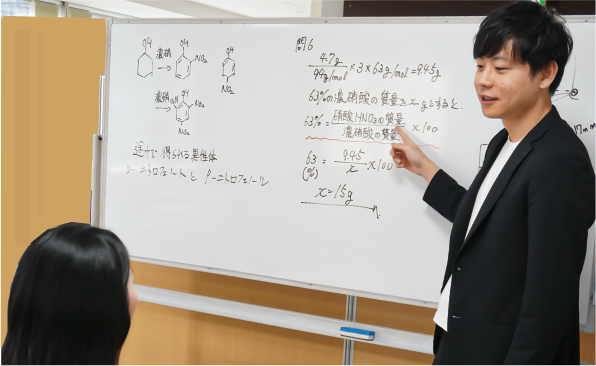 OH
濃硝
OH
NO₂
OH
NO₂
濃硝
OH
NO₂
NO₂
途中で得られる異性体
o-ニトロフェノールと p-ニトロフェノール
問6
4.7g
94g/mol
×3×63g/mol=9.45g
63%の濃硝酸の質量をxgとすると、
63%=
硝酸HNO₃の質量
濃硝酸の質量
×100
63
(%)
=
9.45
x
×100
x=15g